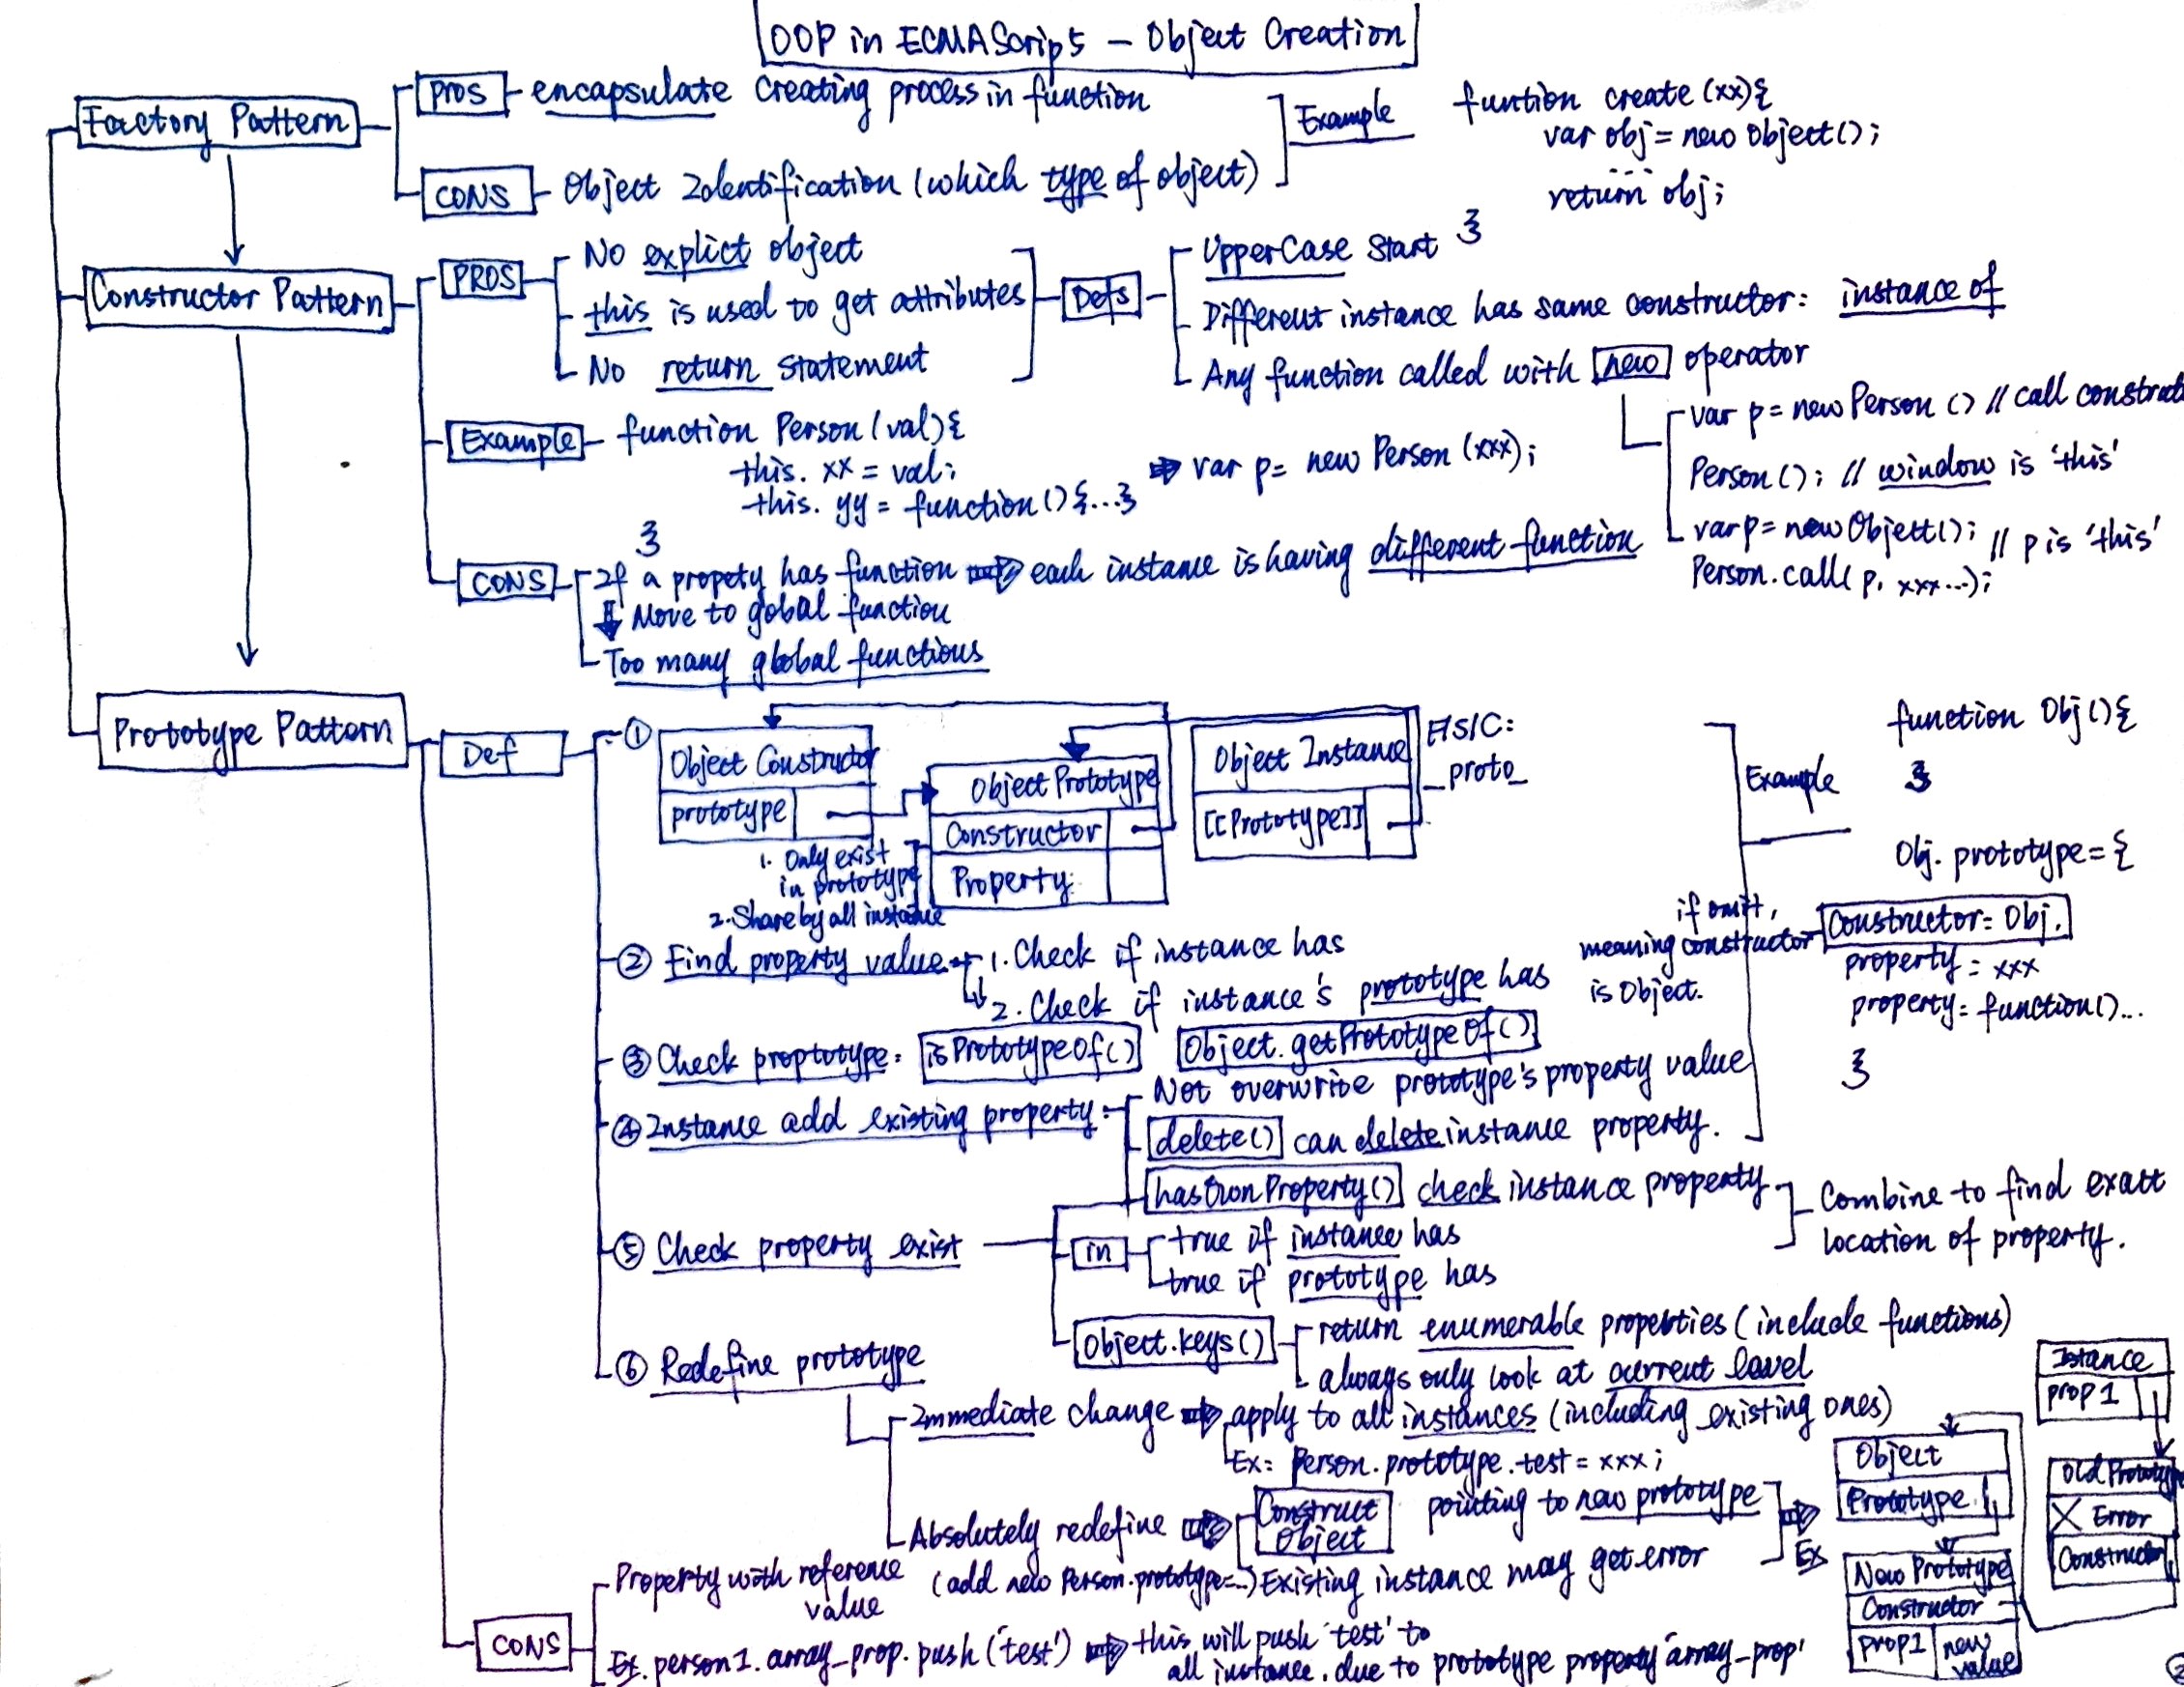 OOP in ECMAScrip5 - Object Creation
Factory Pattern
pros
encapsulate creating process in function
CONS
Object Identification (which type of object)
Example
funtion create (xx){
var obj = new Object();
...
return obj;
}
Constructor Pattern
PROS
No explict object
this is used to get attributes
No return statement
Defs
UpperCase Start
Different instance has same constructor: instance of
Any function called with new operator
var p = new Person () // call construct
Person(); // window is 'this'
var p = new Object(); // p is 'this'
Person.call( p, xxx...);
Example
function Person (val){
this. xx = val;
this. yy = function(){...}
}
⇒ var p = new Person (xxx);
CONS
If a propety has function ⇒ each instance is having different function
⇓ Move to gobal function
Too many global functions
Prototype Pattern
Def
①
Object Constructor
prototype
Object Prototype
Constructor
Property
1. Only exist
in prototype
2. Share by all instance
Object Instance
[[Prototype]]
F/S/C:
_proto_
Example
function Obj(){
}
Obj. prototype = {
Constructor = Obj.
property = xxx
property = function()...
}
if omit,
meaning constructor
is Object.
② Find property value
1. Check if instance has
2. Check if instance's prototype has
③ Check proptotype: isPrototypeOf() Object.getPrototypeOf()
④ Instance add existing property:
Not overwrite prototype's property value
delete() can delete instance property.
hasOwnProperty() check instance property
⑤ Check property exist
in
true if instance has
true if prototype has
Combine to find exact
location of property.
Object.keys()
return enumerable properties (include functions)
always only look at current level
⑥ Redefine prototype
Immediate change ⇒ apply to all instances (including existing ones)
Ex: Person.prototype.test = xxx;
Absolutely redefine ⇒
(add new Person.prototype=...)
Construct
Object
pointing to new prototype
Existing instance may get error
⇒
Ex
Istance
prop1
Object
Prototype
Old Prototype
X Error
Constructor
New Prototype
Constructor
prop1
new
value
CONS
Property with reference
value
Ex. person1. array_prop. push ('test') ⇒ this will push 'test' to
all instance, due to prototype property 'array_prop'